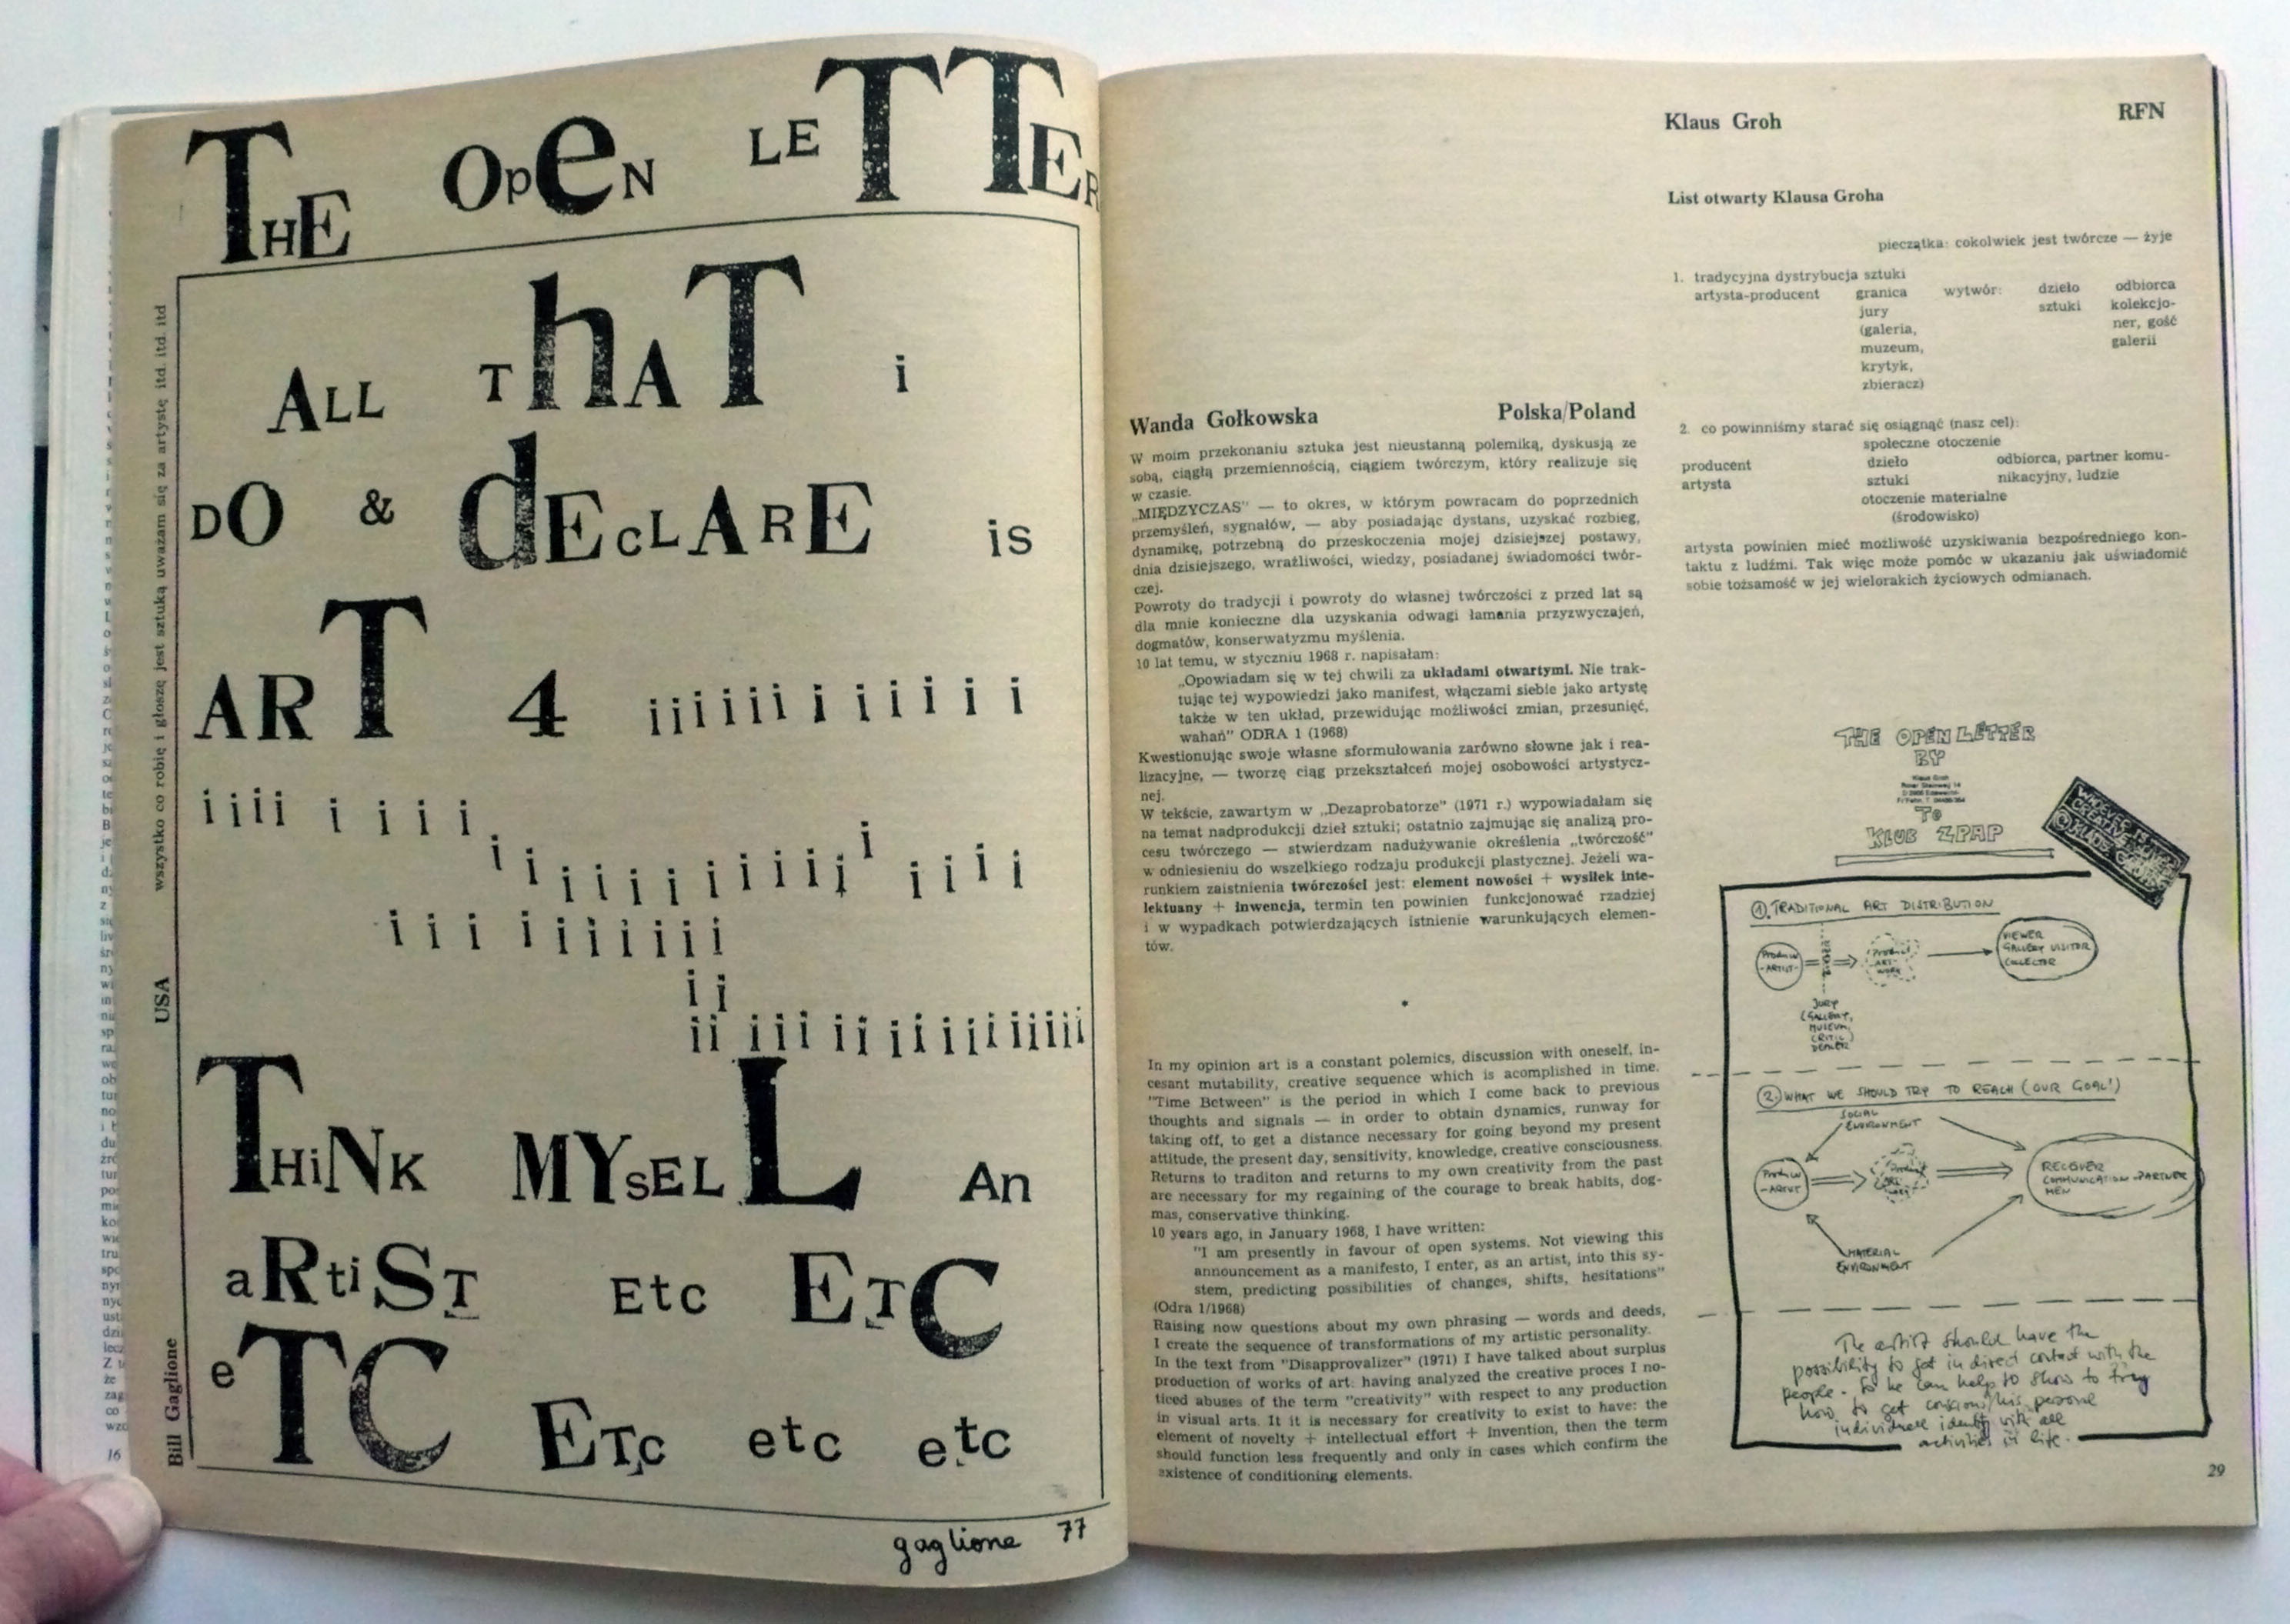 THE OpeN LETTER
ALL ThAT i
DO & dEcLARE is
ART 4 iiiiii i i i i i i
iiii i i i i
i i i i i i i i i i i i i i i i
i i i i i i i i i i
i i
ii iii ii iiiiiiiiiii
THiNK MYsELL An
aRtiST Etc ETC
eTC ETc etc etc
gaglione 77
Bill Gaglione USA wszystko co robię i głoszę jest sztuką uważam się za artystę itd. itd. itd
16
Wanda Gołkowska Polska/Poland
W moim przekonaniu sztuka jest nieustanną polemiką, dyskusją ze
sobą, ciągłą przemiennością, ciągiem twórczym, który realizuje się
w czasie.
„MIĘDZYCZAS” — to okres, w którym powracam do poprzednich
przemyśleń, sygnałów, — aby posiadając dystans, uzyskać rozbieg,
dynamikę, potrzebną do przeskoczenia mojej dzisiejszej postawy,
dnia dzisiejszego, wrażliwości, wiedzy, posiadanej świadomości twór-
czej.
Powroty do tradycji i powroty do własnej twórczości z przed lat są
dla mnie konieczne dla uzyskania odwagi łamania przyzwyczajeń,
dogmatów, konserwatyzmu myślenia.
10 lat temu, w styczniu 1968 r. napisałam:
„Opowiadam się w tej chwili za układami otwartymi. Nie trak-
tując tej wypowiedzi jako manifest, włączami siebie jako artystę
także w ten układ, przewidując możliwości zmian, przesunięć,
wahań” ODRA 1 (1968)
Kwestionując swoje własne sformułowania zarówno słowne jak i rea-
lizacyjne, — tworzę ciąg przekształceń mojej osobowości artystycz-
nej.
W tekście, zawartym w „Dezaprobatorze” (1971 r.) wypowiadałam się
na temat nadprodukcji dzieł sztuki; ostatnio zajmując się analizą pro-
cesu twórczego — stwierdzam nadużywanie określenia „twórczość”
w odniesieniu do wszelkiego rodzaju produkcji plastycznej. Jeżeli wa-
runkiem zaistnienia twórczości jest: element nowości + wysiłek inte-
lektuany + inwencja, termin ten powinien funkcjonować rzadziej
i w wypadkach potwierdzających istnienie warunkujących elemen-
tów.
In my opinion art is a constant polemics, discussion with oneself, in-
cesant mutability, creative sequence which is acomplished in time.
"Time Between" is the period in which I come back to previous
thoughts and signals — in order to obtain dynamics, runway for
taking off, to get a distance necessary for going beyond my present
attitude, the present day, sensitivity, knowledge, creative consciousness.
Returns to traditon and returns to my own creativity from the past
are necessary for my regaining of the courage to break habits, dog-
mas, conservative thinking.
10 years ago, in January 1968, I have written:
"I am presently in favour of open systems. Not viewing this
announcement as a manifesto, I enter, as an artist, into this sy-
stem, predicting possibilities of changes, shifts, hesitations"
(Odra 1/1968)
Raising now questions about my own phrasing — words and deeds,
I create the sequence of transformations of my artistic personality.
In the text from "Disapprovalizer" (1971) I have talked about surplus
production of works of art: having analyzed the creative proces I no-
ticed abuses of the term "creativity" with respect to any production
in visual arts. It it is necessary for creativity to exist to have: the
element of novelty + intellectual effort + Invention, then the term
should function less frequently and only in cases which confirm the
existence of conditioning elements.
Klaus Groh RFN
List otwarty Klausa Groha
pieczątka: cokolwiek jest twórcze — żyje
1. tradycyjna dystrybucja sztuki
artysta-producent granica wytwór: dzieło odbiorca
jury sztuki kolekcjo-
(galeria, ner, gość
muzeum, galerii
krytyk,
zbieracz)
2. co powinniśmy starać się osiągnąć (nasz cel):
społeczne otoczenie
producent dzieło odbiorca, partner komu-
artysta sztuki nikacyjny, ludzie
otoczenie materialne
(środowisko)
artysta powinien mieć możliwość uzyskiwania bezpośredniego kon-
taktu z ludźmi. Tak więc może pomóc w ukazaniu jak uświadomić
sobie tożsamość w jej wielorakich życiowych odmianach.
THE OPEN LETTER
BY
Klaus Groh
TO
KLUB ZPAP
CREATIVE
KLAUS GROH
1. TRADITIONAL ART DISTRIBUTION
-ARTIST-
PRODUCT
ART-
WORK
VIEWER
GALLERY VISITOR
COLLECTOR
JURY
(GALLERY,
MUSEUM,
CRITIC,
DEALER)
2. WHAT WE SHOULD TRY TO REACH (OUR GOAL!)
SOCIAL
ENVIRONMENT
-ARTIST
RECEIVER
COMMUNICATION-PARTNER
MEN
MATERIAL
ENVIRONMENT
The artist should have the
possibility to get in direct contact with the
people. So he can help to show to try
how to get conscious his personal
individual identity with all
activities in life.
29